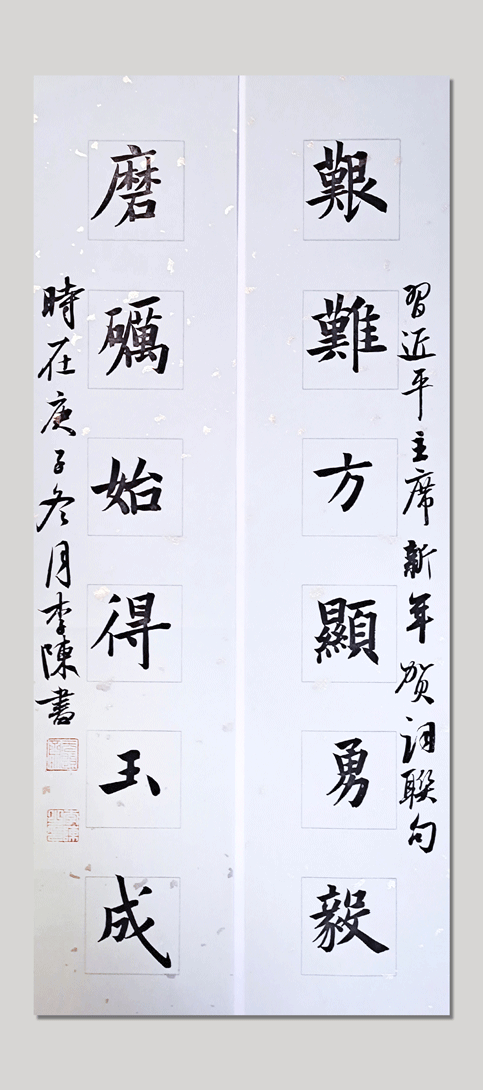 習近平主席新年贺词聯句
艱難方顯勇毅
磨礪始得玉成
時在庚子冬月李陳書